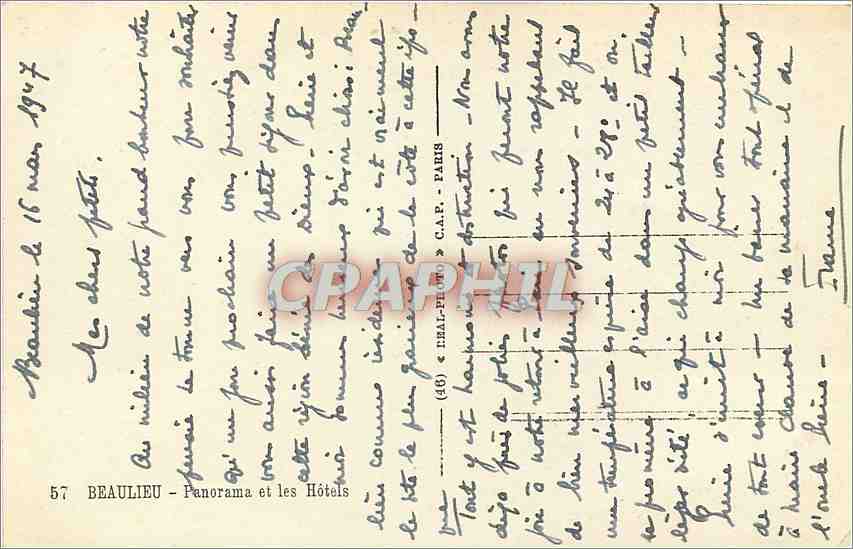 Beaulieu le 16 mars 1947
Mes chers petits.
Au milieu de notre grand bonheur notre
pensée se tourne vers vous pour souhaiter
qu'un jour prochain vous puissiez venir
vous aussi faire un petit séjour dans
cette région bénie des Dieux - Pierre et
moi sommes heureux d'avoir choisi Beau-
lieu comme résidence qui est vraiment
le site le plus gracieux de la côte à cette épo-
que
Tout y est harmonie et distraction - Nous avons
déjà pris de jolies photos qui feront notre
joie à notre retour à Paris en nous rappelant
de bien merveilleux souvenirs - Il fait
une température exquise de 24 à 28° et on
se promène à l'aise dans un petit tailleur
léger d'été ce qui change agréablement -
Pierre s'unit à moi pour vous embrasser
de tout coeur - un baiser tout spécial
à de sa marraine et de
l'oncle Pierre -
57 BEAULIEU - Panorama et les Hôtels
(46) « REAL-PHOTO » C.A.P. - PARIS
CPAPHIL